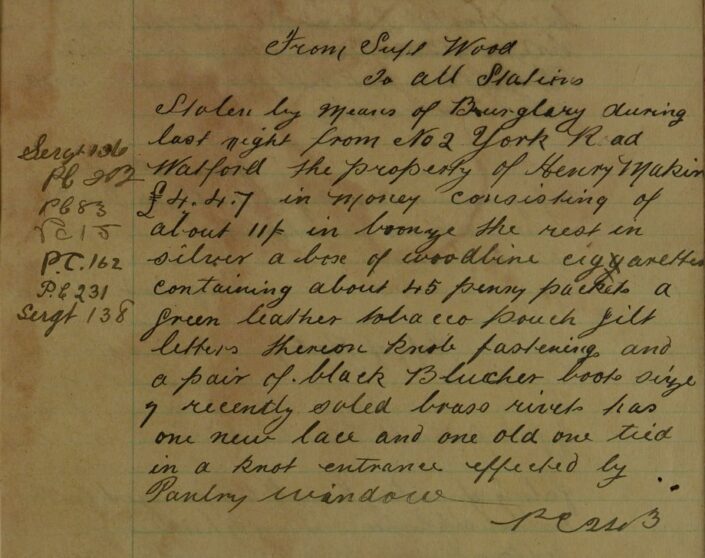 From Supt Wood
To all Stations
Stolen by means of Burglary during
last night from No 2 York Road
Watford the property of Henry Makin
£4.4.7 in money consisting of
about 11/- in bronze the rest in
silver a box of woodbine ciggarettes
containing about 45 penny packets a
green leather tobacco pouch gilt
letters thereon knob fastening and
a pair of black Blucher boots size
7 recently soled brass rivets has
one new lace and one old one tied
in a knot entrance effected by
Pantry window
Sergt 136
PC 202
PC 83
PC 15
P.C. 162
P.C 231
Sergt 138